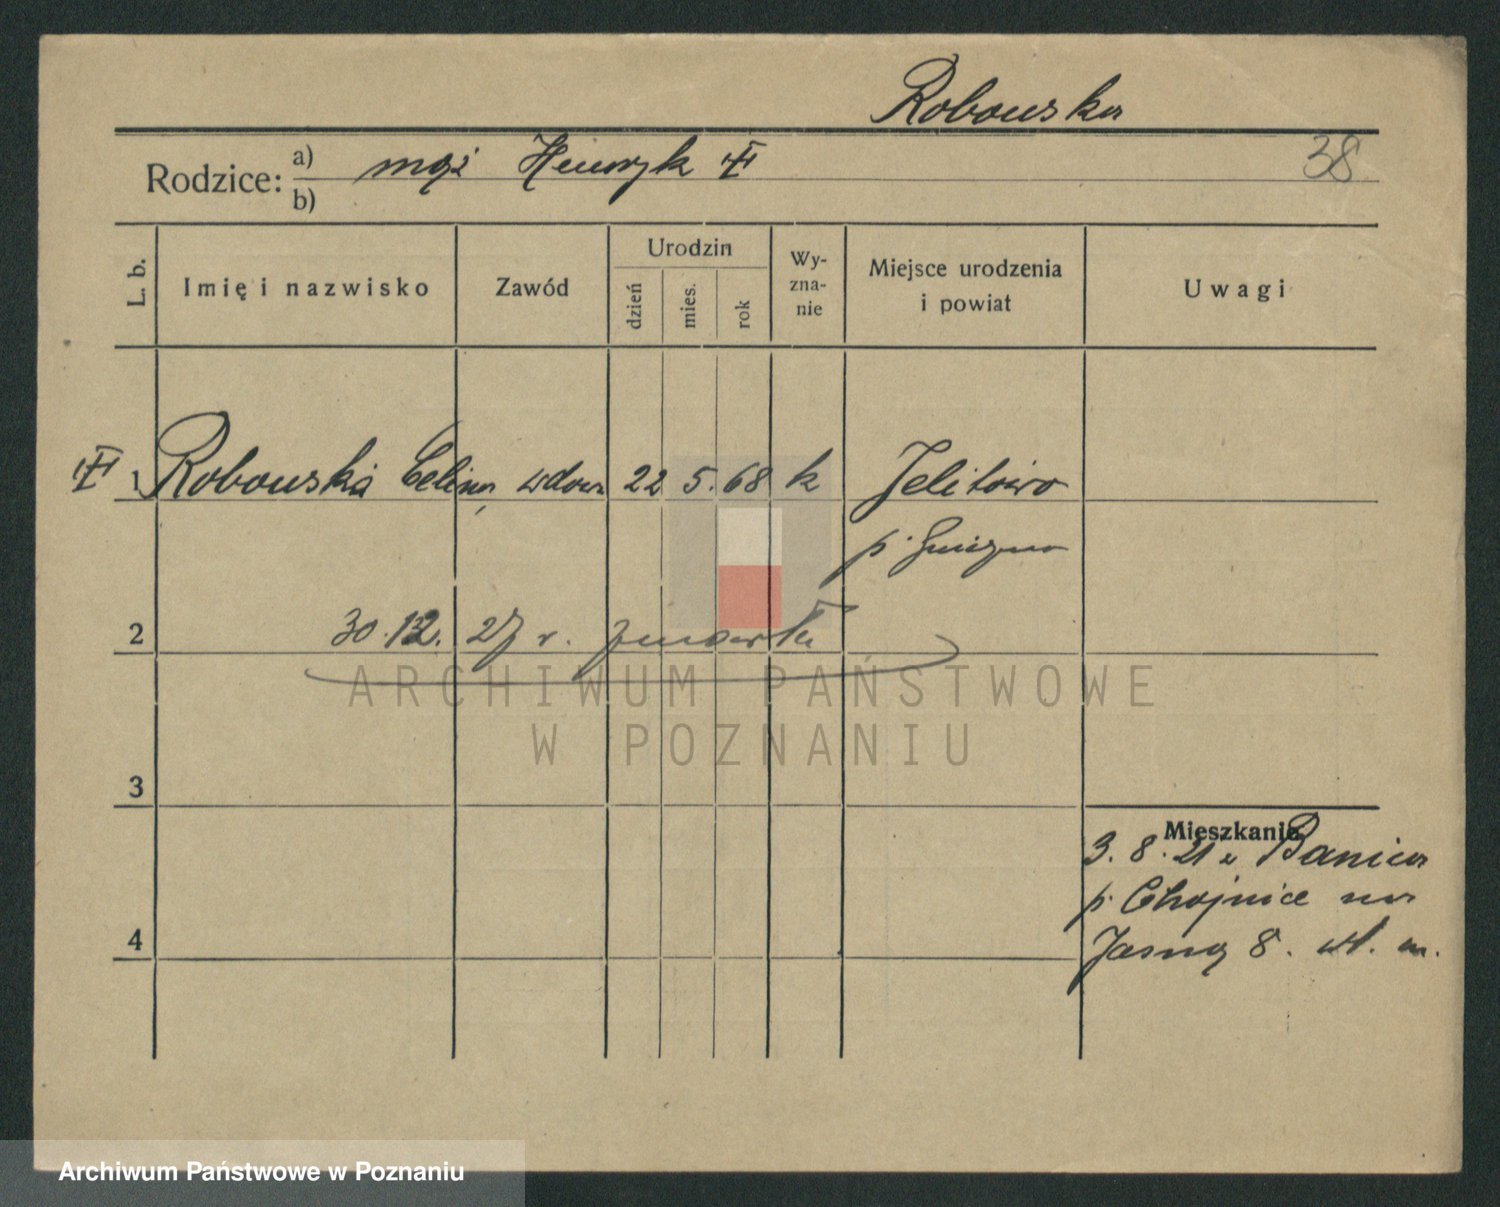 Robowska
Rodzice: a) mąż Henryk
b)
38
L. b. Imię i nazwisko Zawód Urodzin dzień mies. rok Wy-zna-nie Miejsce urodzenia i powiat Uwagi
1 Robowska Celina wdowa 22 5. 68 k Jelitowo
p. Gniezno
2 30.12. 27 r. zmarła
ARCHIWUM PAŃSTWOWE
W POZNANIU
3
Mieszkanie
3. 8. 21 z Banica
p. Chojnice na
4
Jasną 8. wł. m.
Archiwum Państwowe w Poznaniu